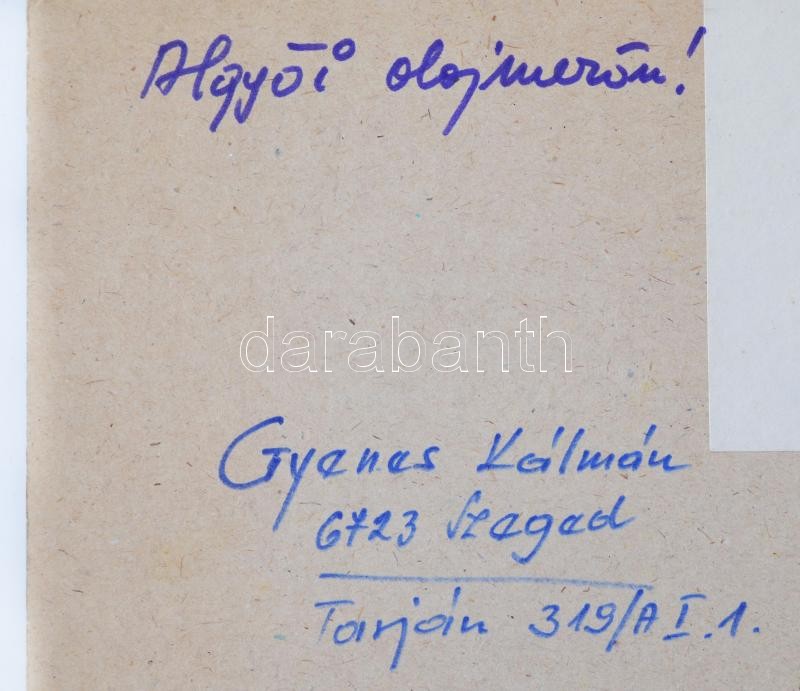 Algyői olajmerőn!
darabanth
Gyenes Kálmán
6723 Szeged
Tarján 319/A I.1.